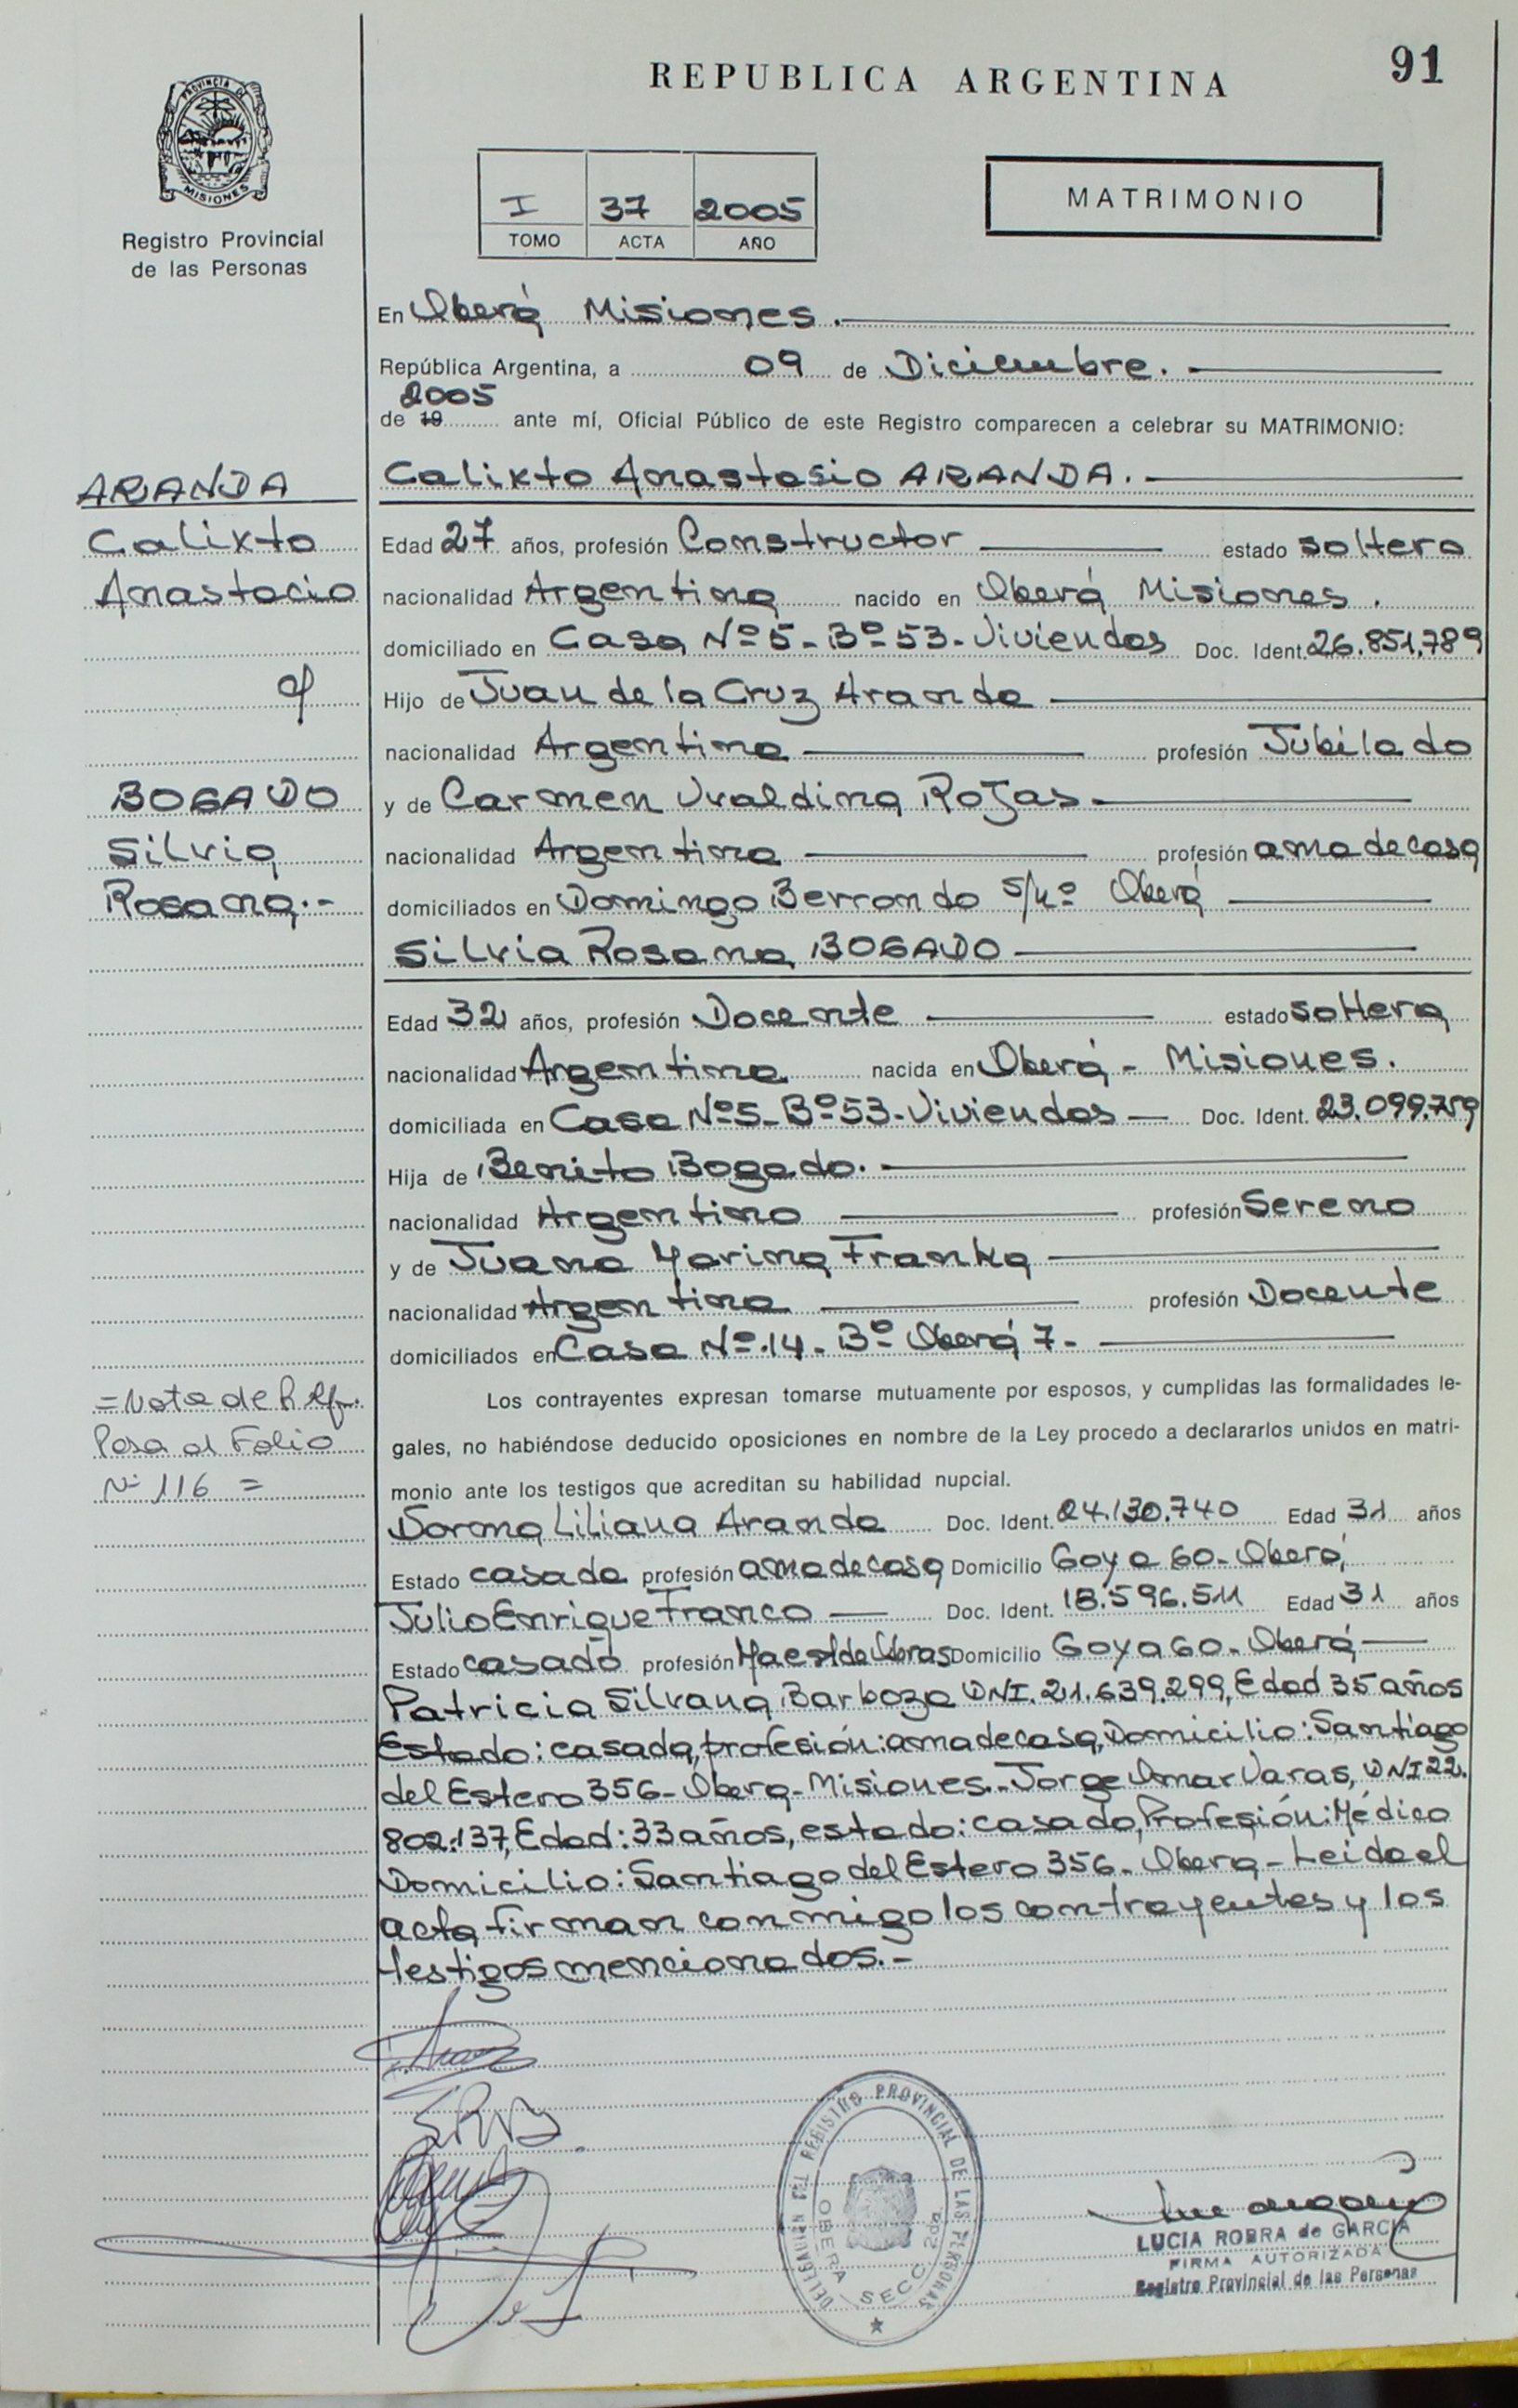 91
REPUBLICA ARGENTINA
PROVINCIA DE
MISIONES
Registro Provincial
de las Personas
I 37 2005
TOMO ACTA AÑO
MATRIMONIO
En Oberá Misiones.
República Argentina, a 09 de Diciembre.
2005
de 19 ante mí, Oficial Público de este Registro comparecen a celebrar su MATRIMONIO:
Calixto Anastasio ARANDA.
ARANDA
Calixto
Anastacio
BOGADO
Silvia
Rosana.-
Edad 27 años, profesión Constructor estado soltero
nacionalidad Argentina nacido en Oberá Misiones.
domiciliado en Casa Nº5-Bº53-Viviendas Doc. Ident. 26.851.789
Hijo de Juan de la Cruz Aranda
nacionalidad Argentina profesión Jubilado
y de Carmen Uvaldina Rojas
nacionalidad Argentina profesión ama de casa
domiciliados en Domingo Berrondo S/nº Oberá
Silvia Rosana BOGADO
Edad 32 años, profesión Docente estado soltera
nacionalidad Argentina nacida en Oberá - Misiones.
domiciliada en Casa Nº5-Bº53-Viviendas Doc. Ident. 23.099.759
Hija de Benito Bogado.
nacionalidad Argentino profesión Sereno
y de Juana Marina Franka
nacionalidad Argentina profesión Docente
domiciliados en Casa Nº.14- Bº Oberá 7-
=Nota de Ref.
Pasa al Folio
Nº 116 =
Los contrayentes expresan tomarse mutuamente por esposos, y cumplidas las formalidades le-
gales, no habiéndose deducido oposiciones en nombre de la Ley procedo a declararlos unidos en matri-
monio ante los testigos que acreditan su habilidad nupcial.
Liliana Aranda Doc. Ident. 24.130.740 Edad 31 años
Estado casada profesión ama de casa Domicilio Goya 60-Oberá
Julio Enrique Franco Doc. Ident. 18.596.511 Edad 31 años
Estado casado profesión Maest de Obras Domicilio Goya 60- Oberá
Patricia Silvana Barboza DNI. 21.639.299, Edad 35 años
Estado: casada, profesión: ama de casa, Domicilio: Santiago
del Estero 356-Obera-Misiones.-Jorge Omar Varas, DNI 22.
802.137, Edad: 33 años, estado: casado, Profesión: Médico
Domicilio: Santiago del Estero 356-Obera-Leida el
acta firman conmigo los contrayentes y los
testigos mencionados.-
SRB
DELEGACIÓN DEL REGISTRO PROVINCIAL DE LAS PERSONAS
OBERA SECC. 2da.
LUCIA ROBRA de GARCIA
FIRMA AUTORIZADA
Registro Provincial de las Personas